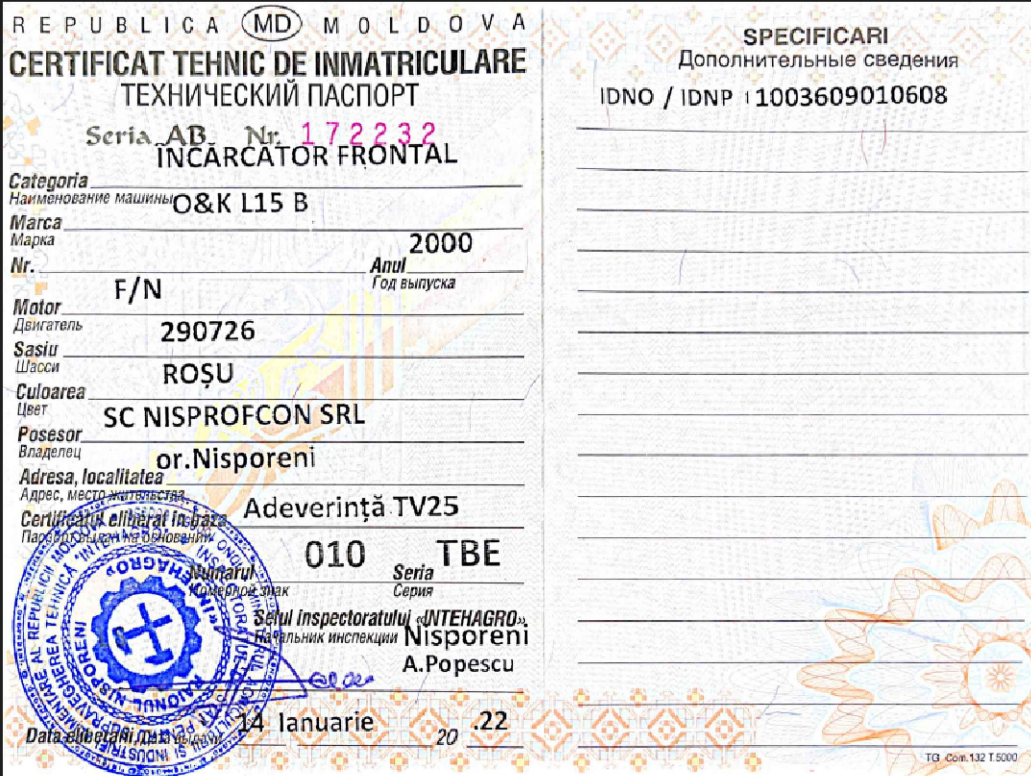 REPUBLICA MD MOLDOVA
CERTIFICAT TEHNIC DE INMATRICULARE
ТЕХНИЧЕСКИЙ ПАСПОРТ
Seria AB Nr. 172232
ÎNCĂRCĂTOR FRONTAL
Categoria
Наименование машины
O&K L15 B
Marca
Марка
2000
Nr.
Anul
Год выпуска
F/N
Motor
Двигатель
290726
Sasiu
Шасси
ROȘU
Culoarea
Цвет
SC NISPROFCON SRL
Posesor
Владелец
or.Nisporeni
Adresa, localitatea
Адрес, место жительства
Adeverință TV25
Certificatul eliberat in baza
Паспорт выдан на основании
010 TBE
Numarul
Номерной знак
Seria
Серия
Seful inspectoratului «INTEHAGRO»
Начальник инспекции
Nisporeni
A.Popescu
14 Ianuarie
20 .22
Data eliberarii
RAIONUL NISPORENI
«INTEHAGRO»
SPECIFICARI
Дополнительные сведения
IDNO / IDNP : 1003609010608
TG Com.132 T.5000